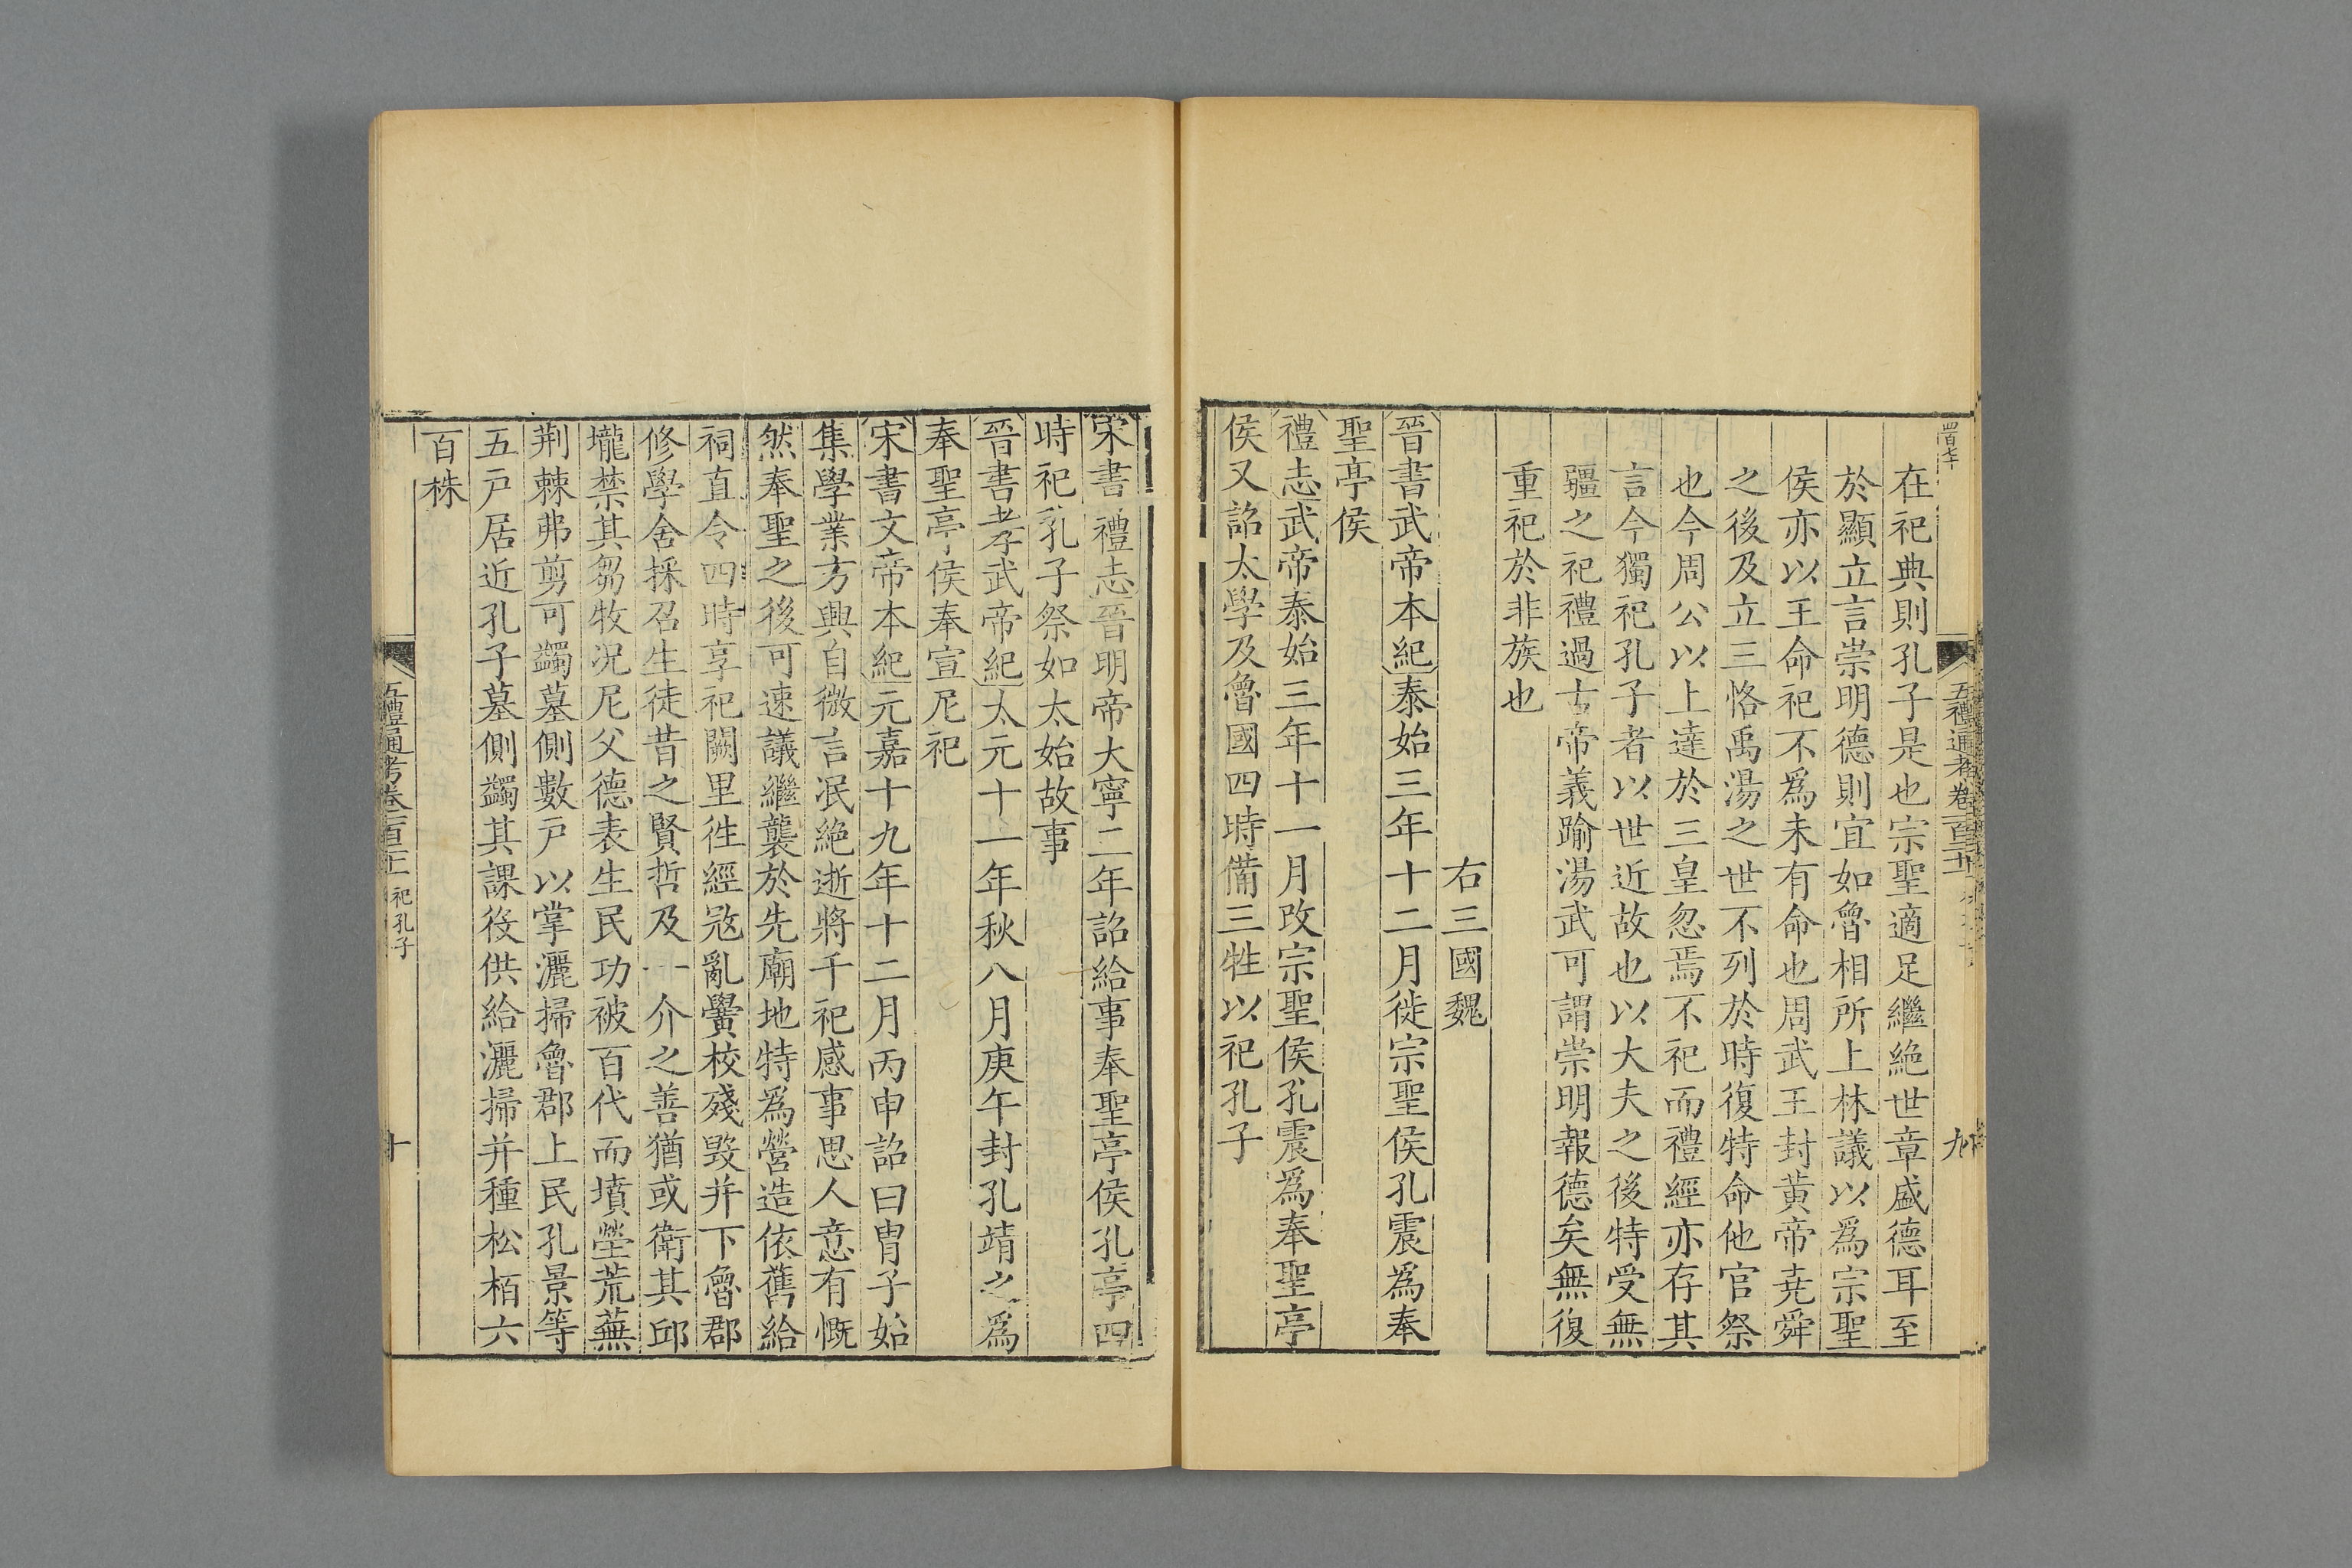 四百七十
五禮通考卷一百
九
在祀典則孔子是也宗聖適足繼絶世章盛德耳至
於顯立言崇明德則宜如魯相所上林議以爲宗聖
侯亦以王命祀不爲未有命也周武王封黄帝堯舜
之後及立三恪禹湯之世不列於時復特命他官祭
也今周公以上達於三皇忽焉不祀而禮經亦存其
言今獨祀孔子者以世近故也以大夫之後特受無
疆之祀禮過古帝義踰湯武可謂崇明報德矣無復
重祀於非族也
右三國魏
晉書武帝本紀泰始三年十二月徙宗聖侯孔震爲奉
聖亭侯
禮志武帝泰始三年十一月改宗聖侯孔震爲奉聖亭
侯又詔太學及魯國四時備三牲以祀孔子
宋書禮志晉明帝大寧二年詔給事奉聖亭侯孔亭四
時祀孔子祭如太始故事
晉書孝武帝紀太元十一年秋八月庚午封孔靖之爲
奉聖亭侯奉宣尼祀
宋書文帝本紀元嘉十九年十二月丙申詔曰胄子始
集學業方興自微言泯絶逝將千祀感事思人意有慨
然奉聖之後可速議繼襲於先廟地特爲營造依舊給
祠直令四時享祀闕里徃經宼亂黌校殘毁并下魯郡
修學舍採召生徒昔之賢哲及一介之善猶或衛其邱
壠禁其芻牧況尼父德表生民功被百代而墳塋荒蕪
荆棘弗剪可蠲墓側數戸以掌灑掃魯郡上民孔景等
五戸居近孔子墓側蠲其課役供給灑掃并種松栢六
百株
五禮通考卷一百 祀孔子
十